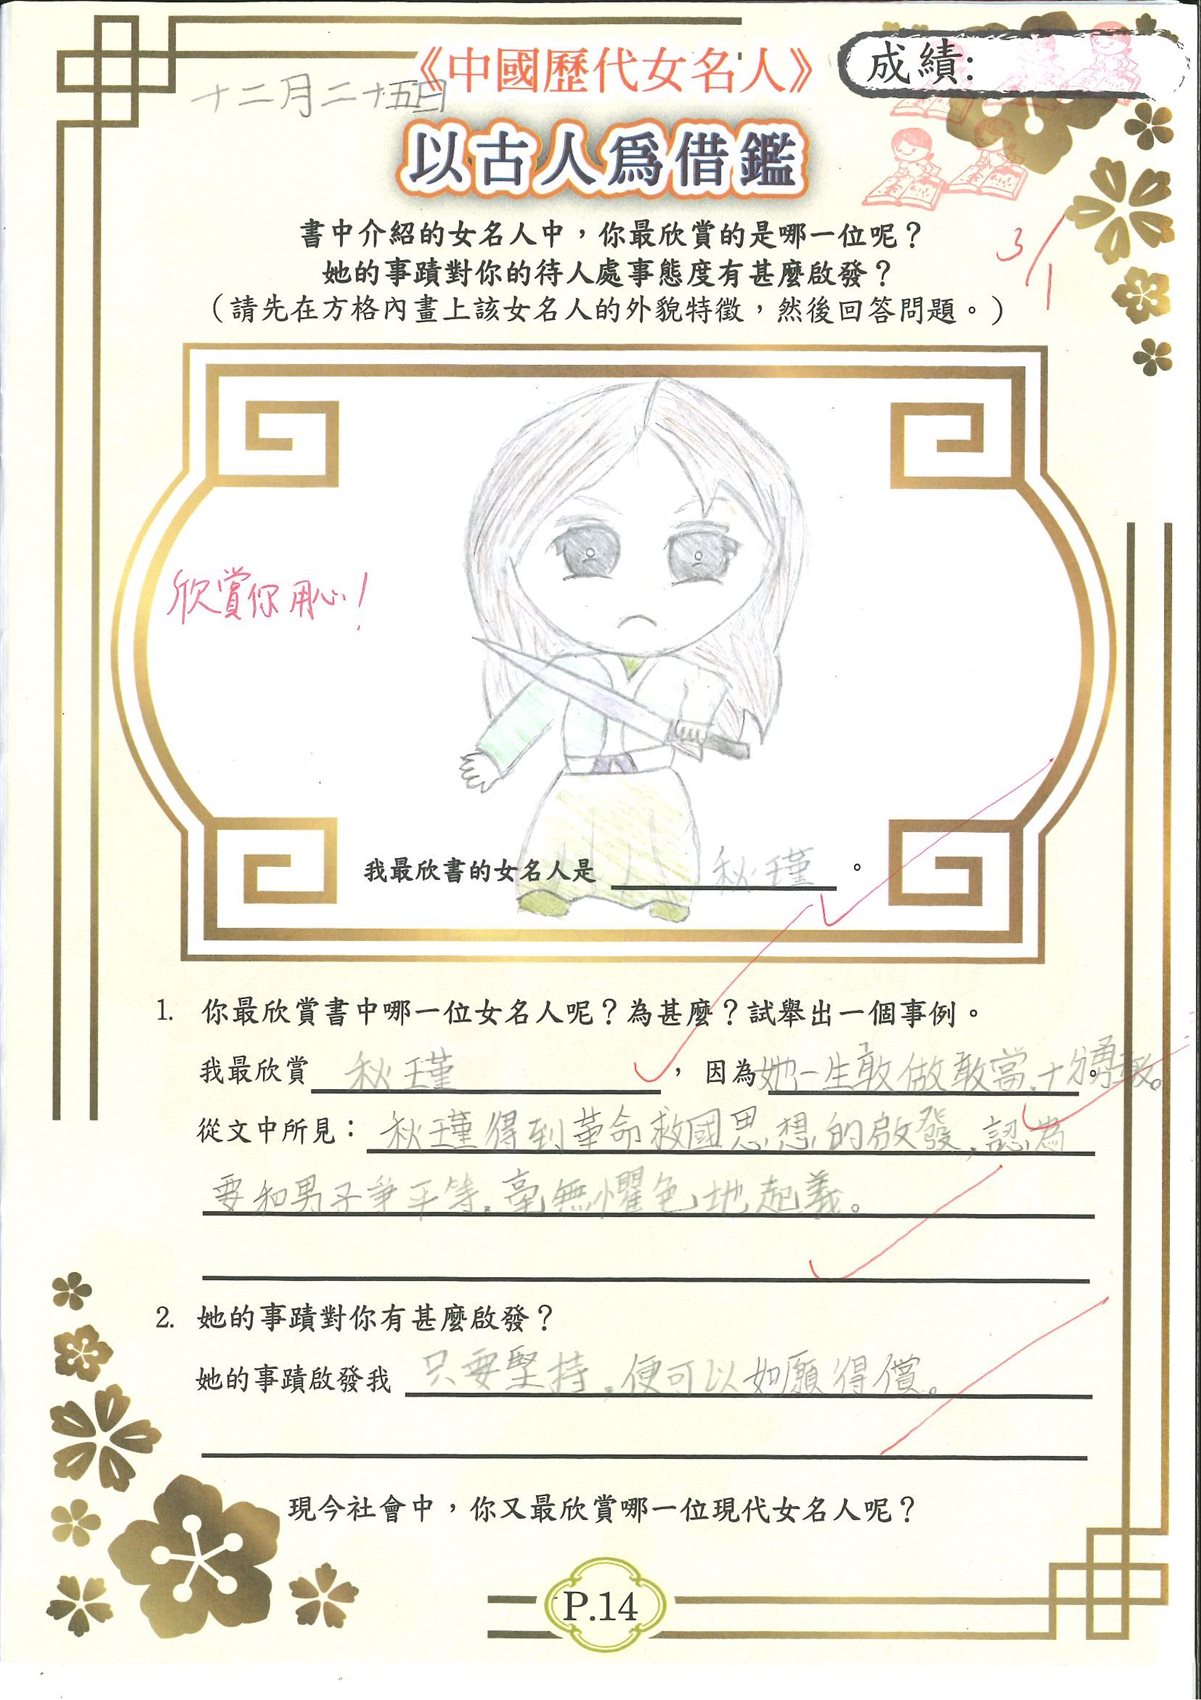 《中國歷代女名人》
成績:
十二月二十五日
以古人爲借鑑
書中介紹的女名人中，你最欣賞的是哪一位呢？
她的事蹟對你的待人處事態度有甚麼啟發？
（請先在方格內畫上該女名人的外貌特徵，然後回答問題。）
3/1
欣賞你用心！
我最欣書的女名人是 秋瑾 。
1. 你最欣賞書中哪一位女名人呢？為甚麼？試舉出一個事例。
我最欣賞 秋瑾 ，因為她一生敢做敢當,十分勇敢。
從文中所見：秋瑾得到革命救國思想的啟發,認為
要和男子爭平等,毫無懼色地起義。
2. 她的事蹟對你有甚麼啟發？
她的事蹟啟發我 只要堅持,便可以如願得償。
現今社會中，你又最欣賞哪一位現代女名人呢？
P.14